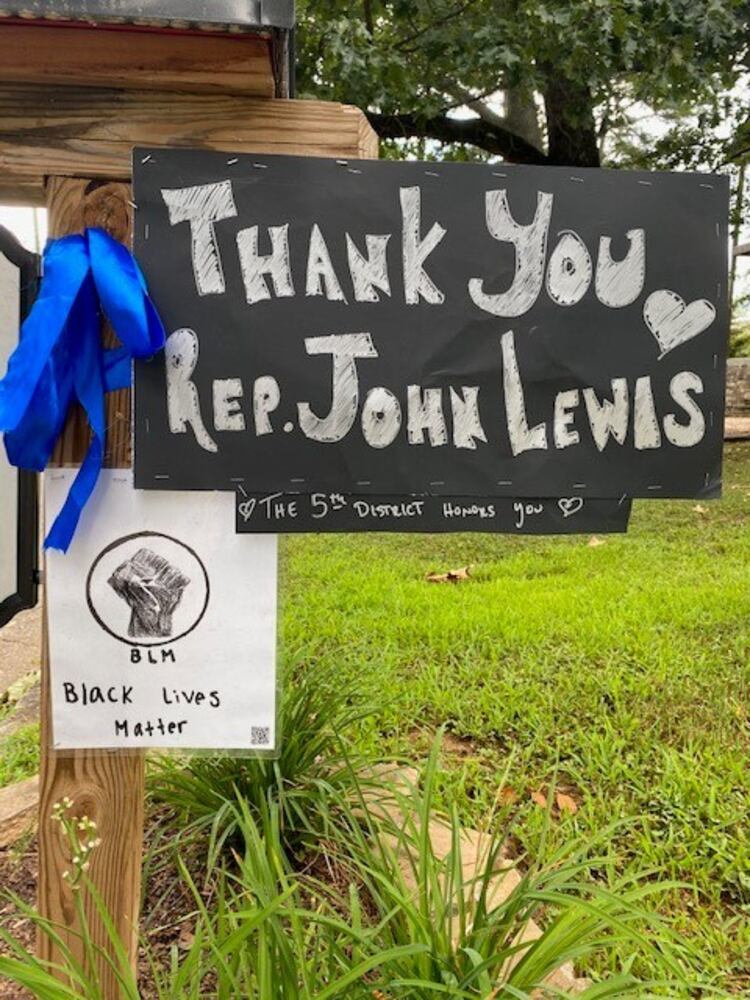 THANK YOU
REP. JOHN LEWIS
THE 5th DISTRICT HONORS YOU
BLM
Black Lives
Matter